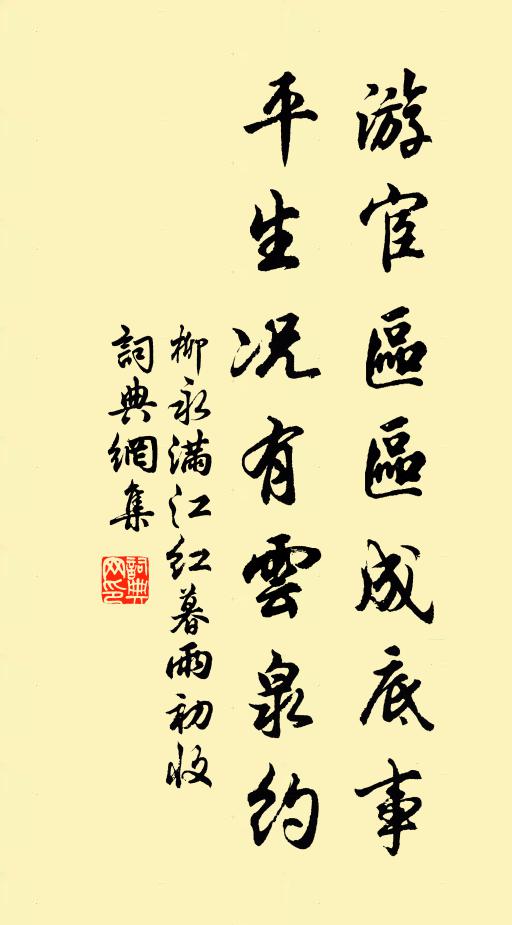 游宦區區成底事
平生况有雲泉約
柳永滿江红暮雨初收
詞典網集
詞典网印